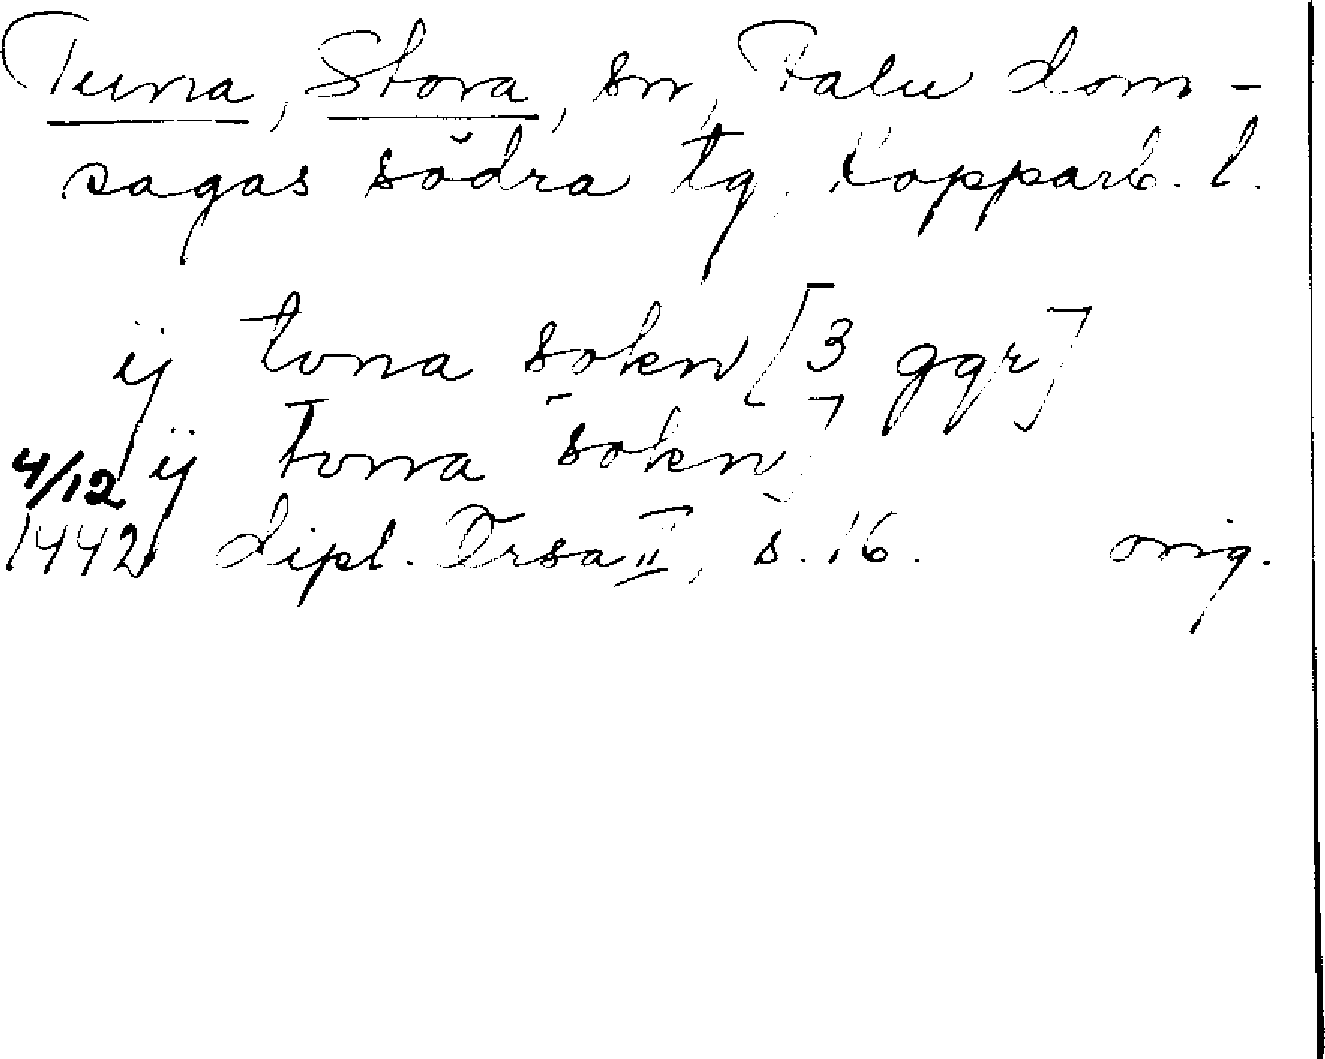 Tuna, Stora, sn, Falu dom-
sagas södra tg. Kopparb. l.
ij tona sokn [3 ggr]
ij tona sokn]
4/12
1442 dipl. Orsa II, s. 16. orig.